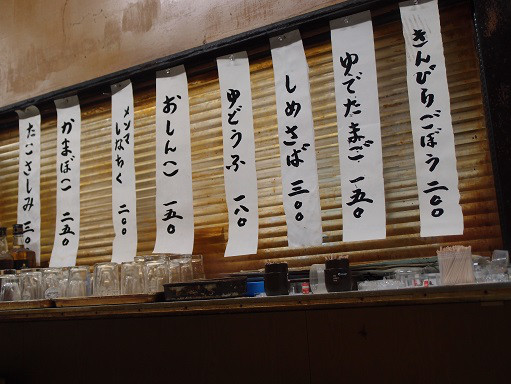 きんぴらごぼう 二〇〇
ゆでたまご 一五〇
しめさば 三〇〇
ゆどうふ 一八〇
おしんこ 一五〇
メンマ
しなちく 二〇〇
かまぼこ 二五〇
たこさしみ 三〇